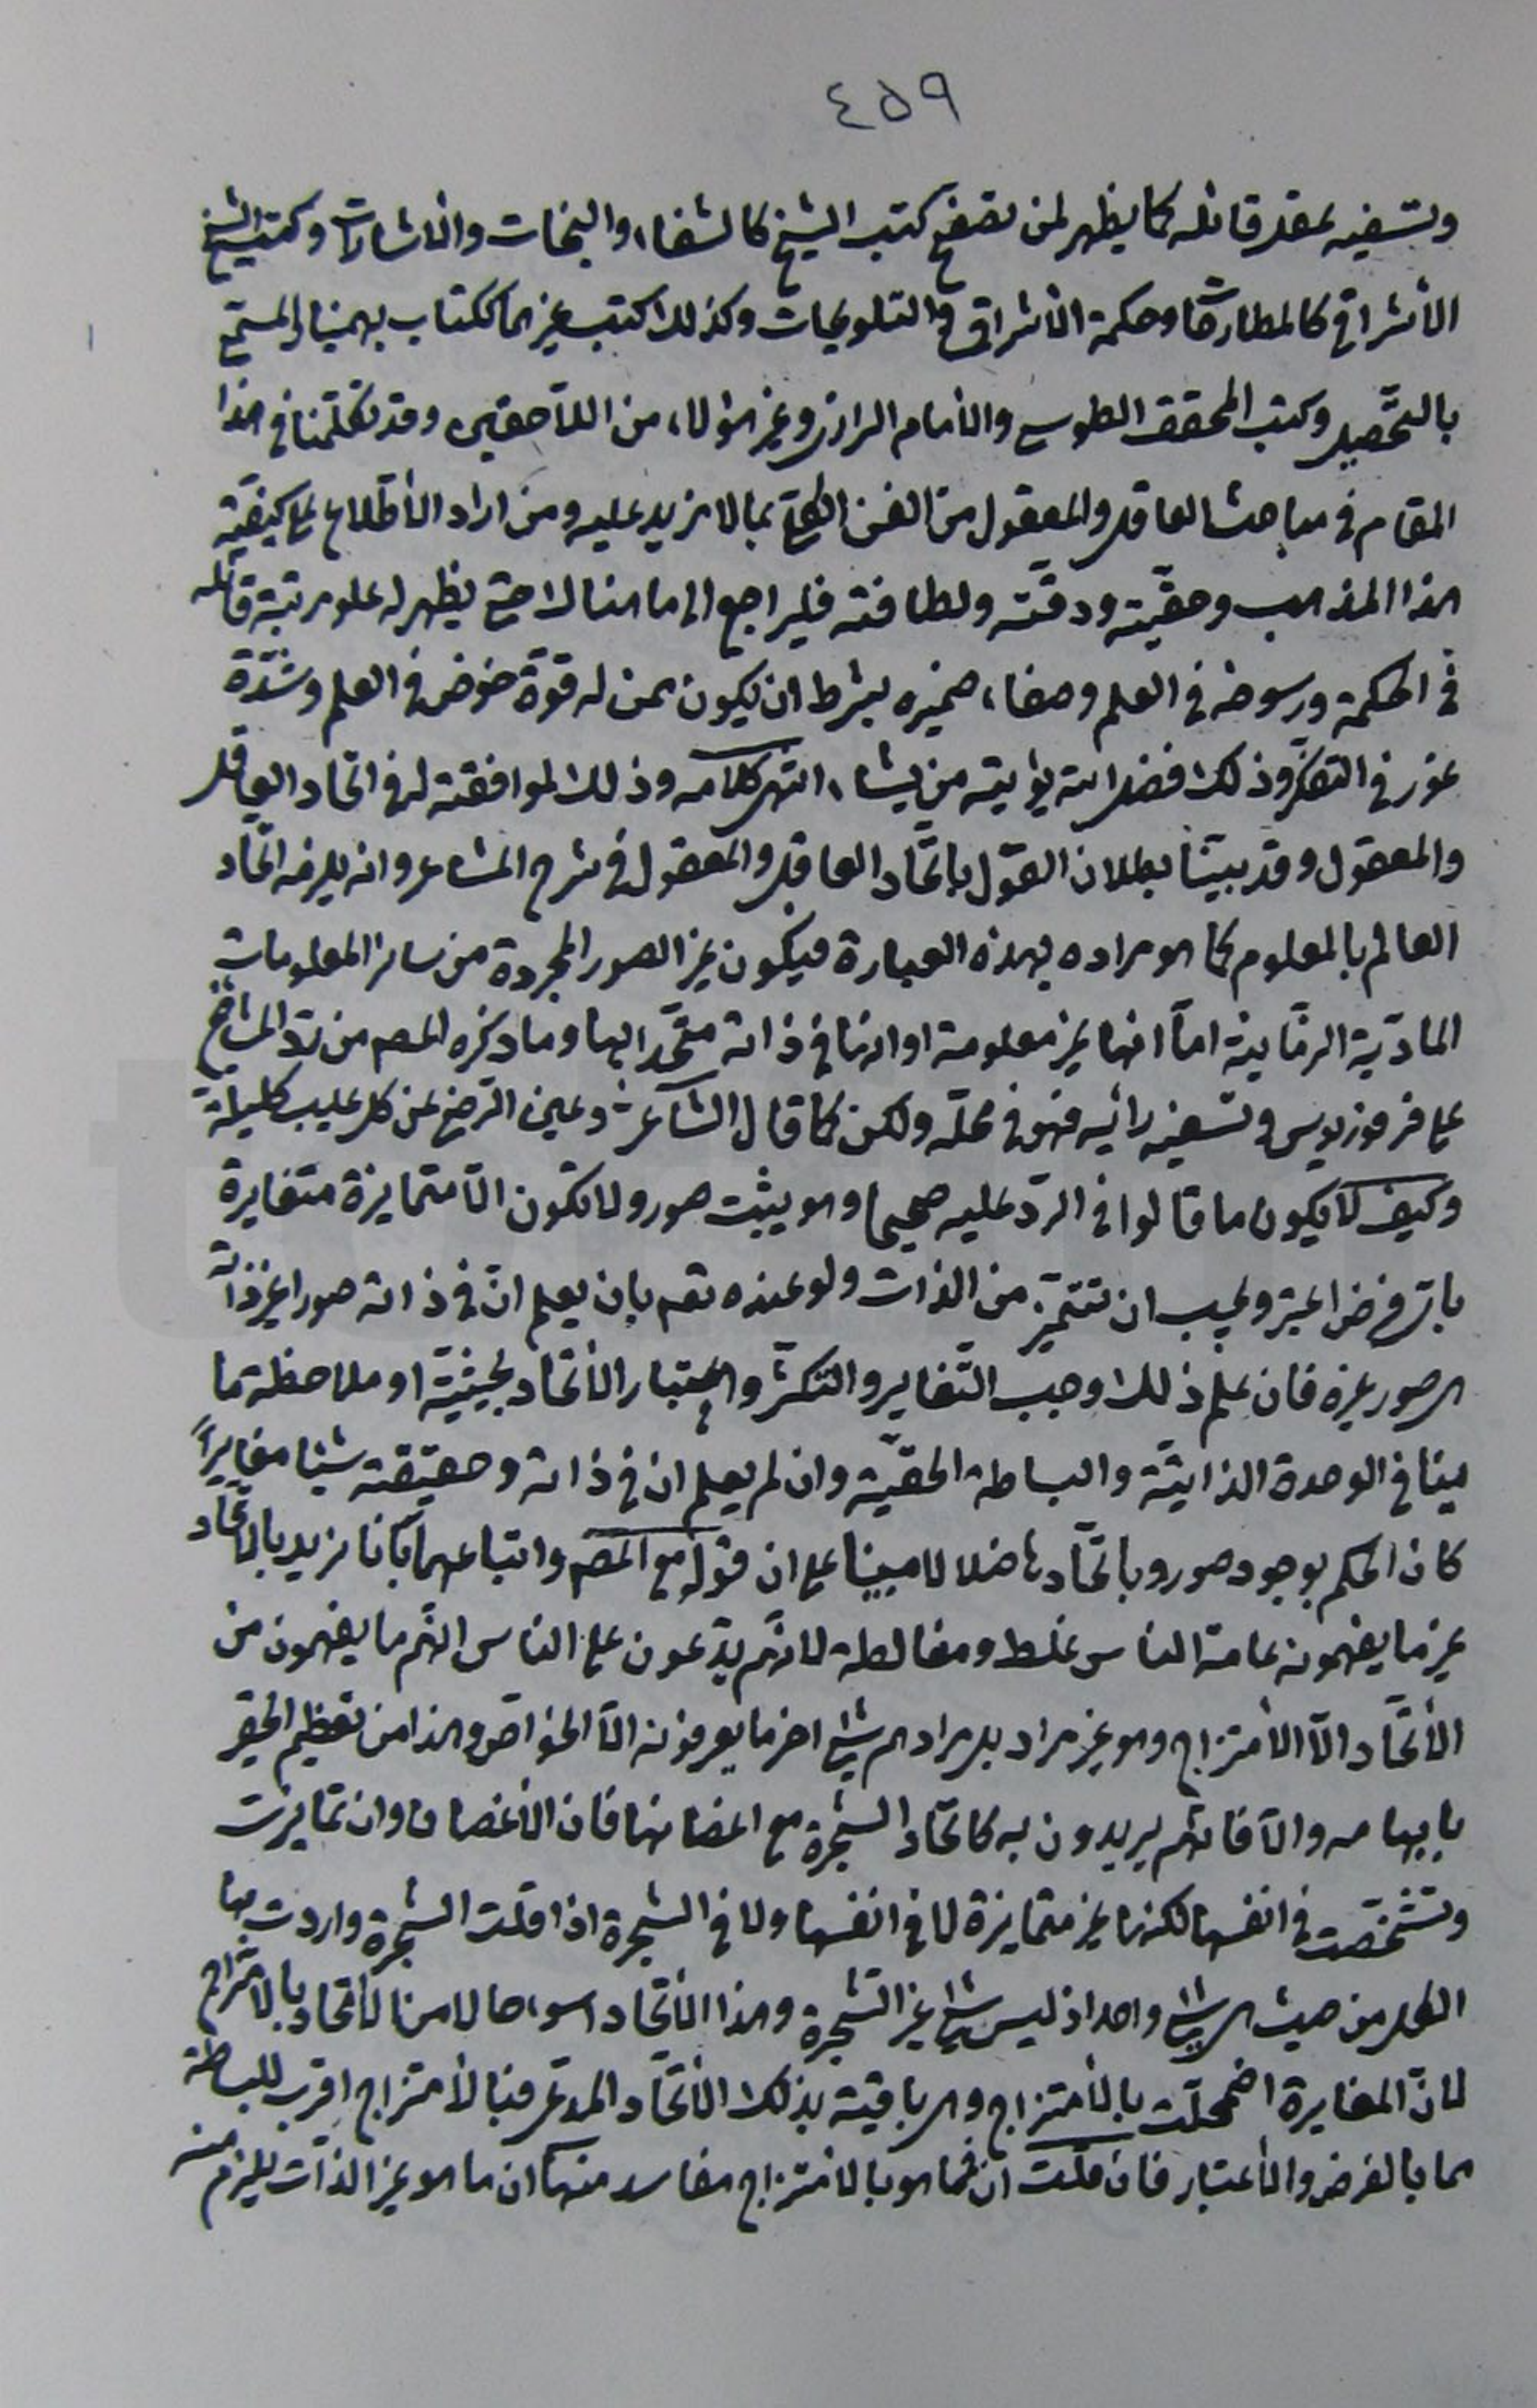 ٤٥٩
وتسفيه عقل قائله كما يظهر لمن تصفح كتب الشيخ كالشفاء والنجات والاشارات وكتب الشيخ
الأشراقي كالمطارحات وحكمة الأشراق والتلويحات وكذلك كتب غيرهما ككتاب بهمنيار المسمّى
بالتّحصيل وكتب المحقق الطوسي والأمام الرازي وغير هؤلاء من اللّاحقين وقد تكلّمنا في هذا
المقام في مباحث العاقل والمعقول من الفن الكلّي بما لا مزيد عليه ومن اراد الأطّلاع على كيفيّة
هذا المذهب وحقّيته ودقّته ولطافته فليراجع الى ما هنالك حتى يظهر له علو مرتبة قائله
في الحكمة ورسوخه في العلم وصفاء ضميره بشرط ان يكون ممن له قوّة خوض في العلم وشدّة
غور في التفكّر وذلك فضل الله يؤتيه من يشاء انتهى كلامه وذلك لموافقته له في اتحاد العاقل
والمعقول وقد بيّنّا بطلان القول باتّحاد العاقل والمعقول في شرح المشاعر وانه يلزمه اتّحاد
العالم بالمعلوم كما هو مراده بهذه العبارة فيكون غير الصور المجردة من سائر المعلومات
المادّية الزمّانية امّا انها غير معلومة او انها في ذاته متّحدا بها وما ذكره المصه من ردّ المشائين
على فرفوريوس وتسفيه رائيه فهو في محلّه ولكن كما قال الشّاعر ث وعين الرّضى عن كل عيب كليلة
وكيف لا يكون ما قالوا في الردّ عليه صحيحا وهو يثبت صور ولا تكون الّا متمايزة متغايرة
باىّ فرض اعتبر ويجب ان تتميّز من الذات ولو عنده تعم بان يعلم انّ في ذاته صورا غير ذاته
هي صور غيره فان علم ذلك وجب التّغاير والتكثّر واعتبار الأتّحاد بحيثيّة او ملاحظة ما
ينافي الوحدة الذاتيّة والبساطة الحقّية وان لم يعلم ان في ذاته وحقيقته شيئا مغايراً
كان الحكم بوجود صور وباتّحادها ضلالا مبينا على ان قوله مع المصه واتباعهما بانّا نريد بالاتّحاد
غير ما يفهمونه عامة الناس غلط ومغالطة لانهّم يدّعون على الناس انهّم ما يفهمون من
الأتّحاد الّا الأمتزاج وهو غير مراد بل مرادهم شئ اخر ما يعرفونه الّا الخواص وهذا من تعظيم الحقير
بابهامه والّا فانهّم يريدون به كاتّحاد الشجرة مع اغصانها فان الأغصان وان تمايزت
وتشخّصت في انفسها لكنها غير متمايزة لا في انفسها ولا في الشجرة اذا قلت الشجرة واردت بها
الكل من حيث هي شئ واحد اذ ليس شئ غير الشّجرة وهذا الأتّحاد اسواء حالا من الاتحاد بالامتزاج
لانّ المغايرة اضمحلّت بالأمتزاج وهي باقية بذلك الأتّحاد المدّعى فبالأمتزاج اقرب للبساطة
مما بالفرض والأعتبار فان قلت انّ فيما هو بالامتزاج مفاسد منها ان ما هو غير الذات يلزم منه